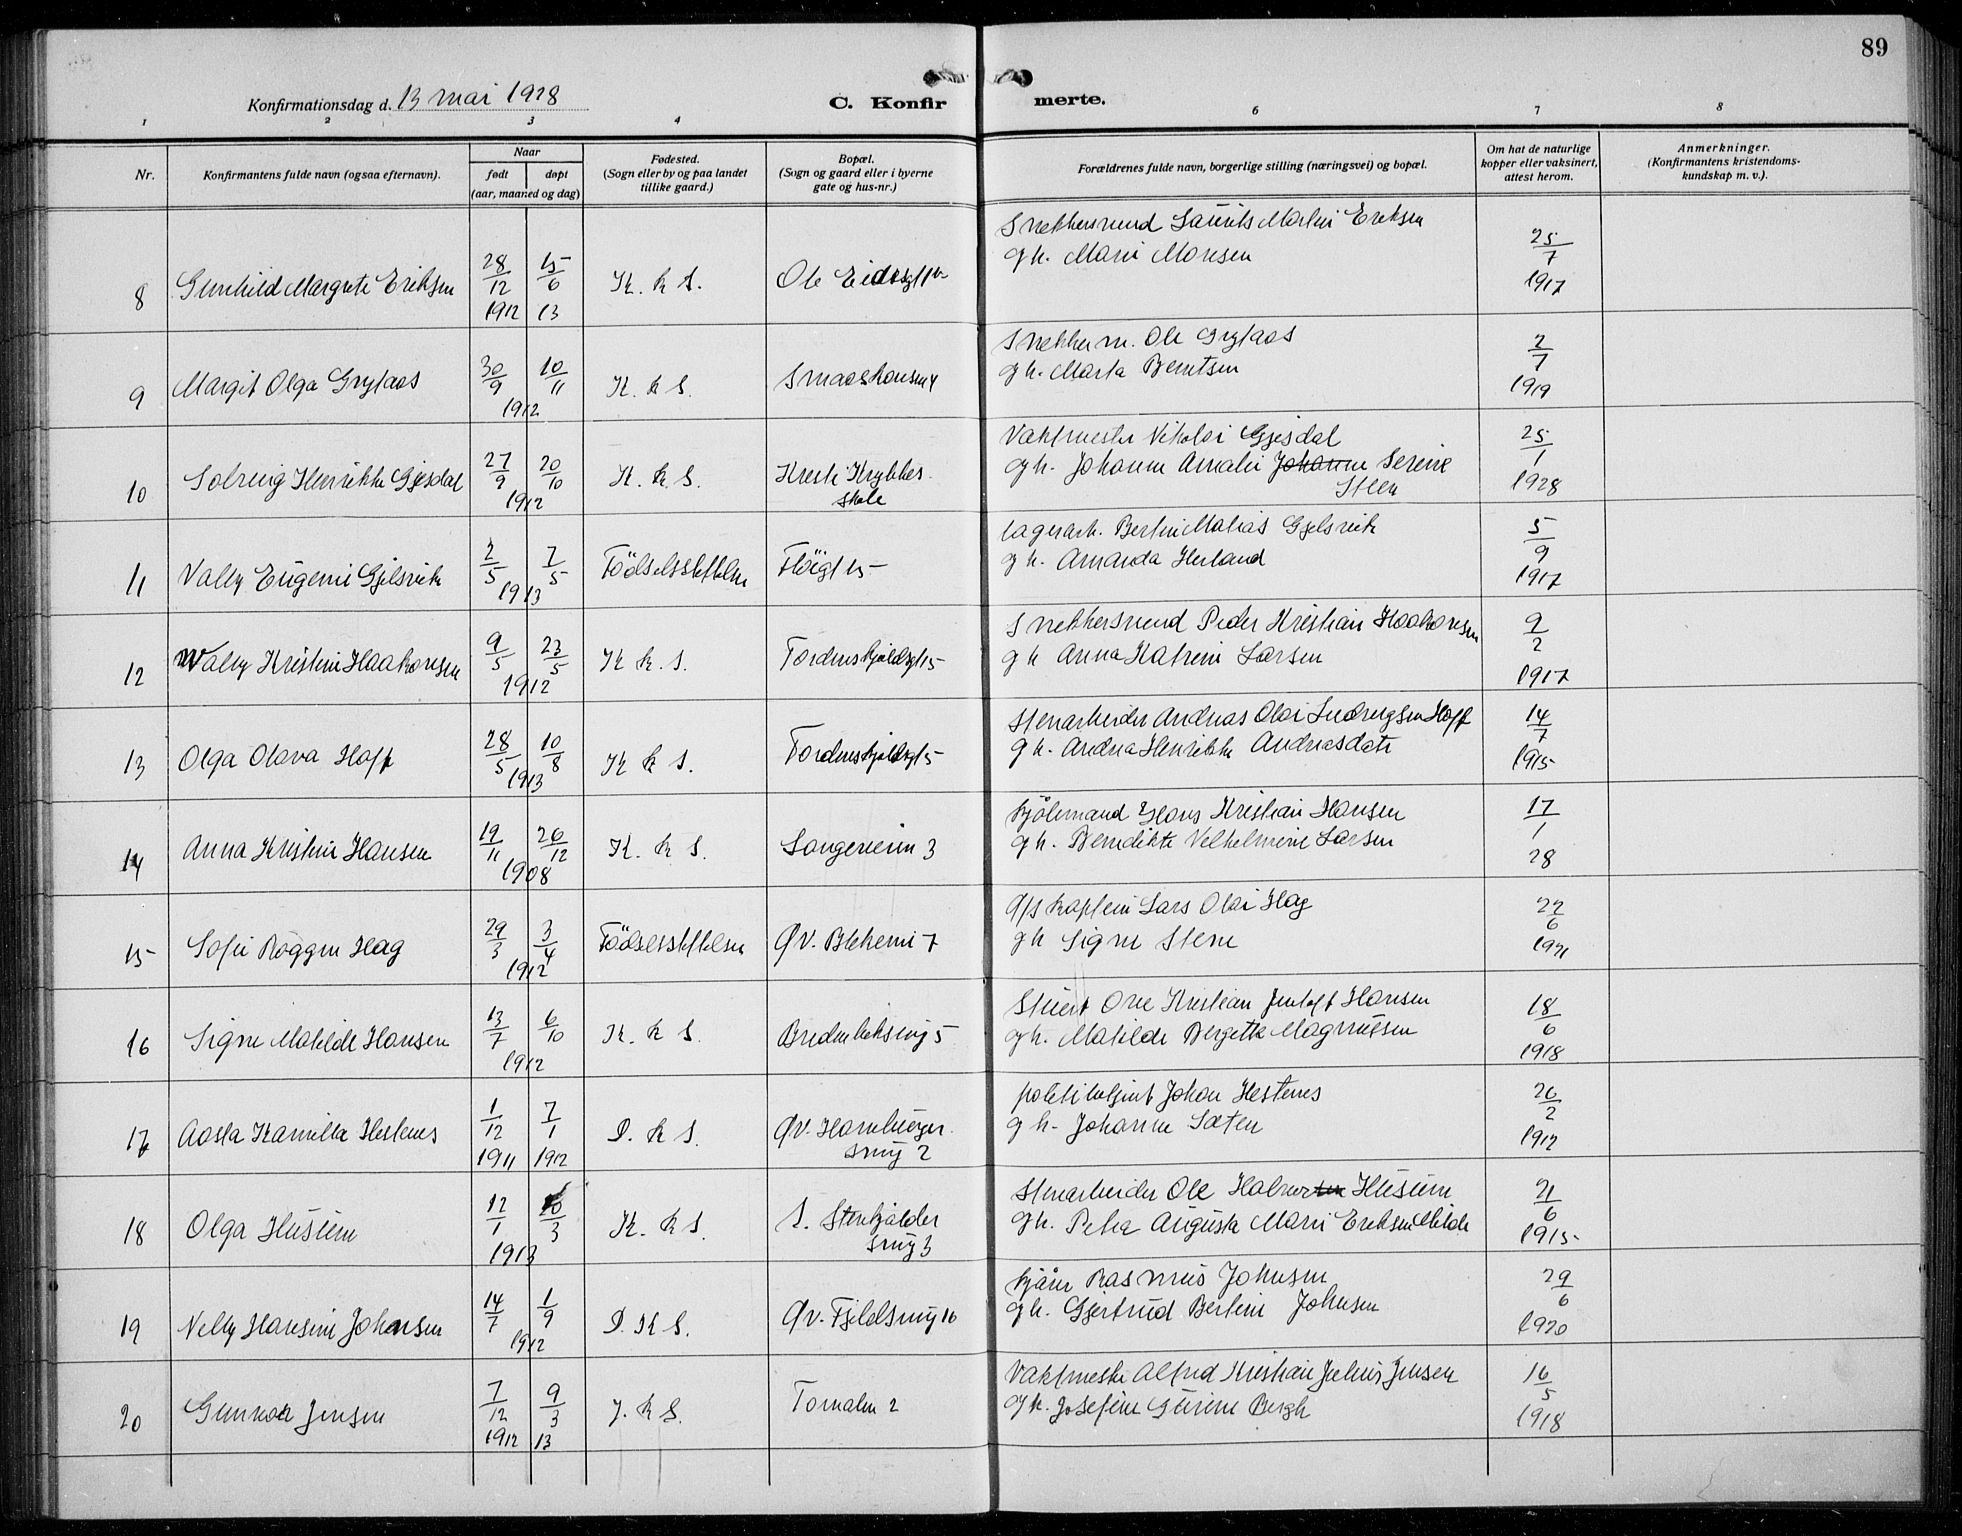 89
Konfirmationsdag d. 13 mai 1928
C. Konfirmerte.
1 2 3 4 6 7 8
Nr.
Konfirmantens fulde navn (ogsaa efternavn).
Naar
født døpt
(aar, maaned og dag)
Fødested.
(Sogn eller by og paa landet
tillike gaard.)
Bopæl.
(Sogn og gaard eller i byerne
gate og hus-nr.)
Forældrenes fulde navn, borgerlige stilling (næringsvei) og bopæl.
Om hat de naturlige
kopper eller vaksinert,
attest herom.
Anmerkninger.
(Konfirmantens kristendoms-
kundskap m. v.).
Snekkersvend Laurits Martin Eriksen
8 Gunhild Margrete Eriksen 28/12 1912 15/6 13 K. k S. Ole
og h. Marie Monsen 25/7 1917
Snekkerm. Ole Grytaas
9 Margit Olga Grytaas 30/9 10/11 1912 K. k S.
og h. Marta Berntsen 2/7 1919
Vaktmester Nikolai Gjesdal
10 Solveig Henrikke Gjesdal 27/9 20/10 1912 K. k S. Krist. Krybbes
skole
og h. Johanne Amalie Johanne Serine
Steen 25/1 1928
lagerarb. Bertin Matias Gjelsvik
11 Vally Eugenie Gjelsvik 2/5 7/5 1913 Födselsstiftelsen Fløigt 15
og h. Amanda Herland 5/9 1917
Snekkersvend Peder Kristian Haakonsen
12 Wally Kristine Haakonsen 9/5 23/5 1912 K k. S. Tordenskjoldsgt 15
og h Anna Katrine Larsen 9/2 1917
Stenarbeider Andreas Olai Ludvigsen Hoff
13 Olga Olava Hoff 28/5 10/8 1913 K k S. Tordenskjoldsgt 5
og h. Andrea Henrikke Andreasdatr 14/7 1915
kjölemand Hans Kristian Hansen
14 Anna Kristine Hansen 19/11 26/12 1908 K. k S. 3
og h. Benedikte Vilhelmine Larsen 17/1 28
d/s kaptein Lars Olai Hag
15 Sofie Röggen Hag 29/3 3/4 1912 Födselsstiftelsen Øv. Blekevei 7
og h Signe Stene 22/6 1921
Stuert Ove Kristian Jentoft Hansen
16 Signe Matilde Hansen 13/7 6/10 1912 K. k S. Bredenbeksmug 5
og h. Matilde Bergette Magnussen 18/6 1918
politibetjent Johan Hestenes
17 Aasta Kamilla Hestenes 1/12 1911 7/1 1912 D. k S. Øv. Hamburger
smug 2
og h. Johanne Sæten 26/2 1912
Stenarbeider Ole Husum
18 Olga Husum 12/1 10/3 1913 K. k S. S. Stenkjelder
smug 3
og h. Petra Augusta Marie Eriksen Milde 21/6 1915
Rasmus Johnsen
19 Nelly Hansine Johnsen 14/7 1/9 1912 D. K S. Øv. Fjeldsmug 16
og h. Gjertrud Bertine Johnsen 29/6 1920
Vaktmester Alfred Kristian Julius Jensen
20 Gunnvor Jensen 7/12 1912 9/3 13 J. k S. 2
og h. Josefine Gurine Bergh 16/5 1918